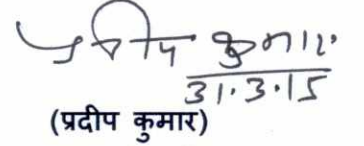 प्रदीप कुमार
31.3.15
(प्रदीप कुमार)